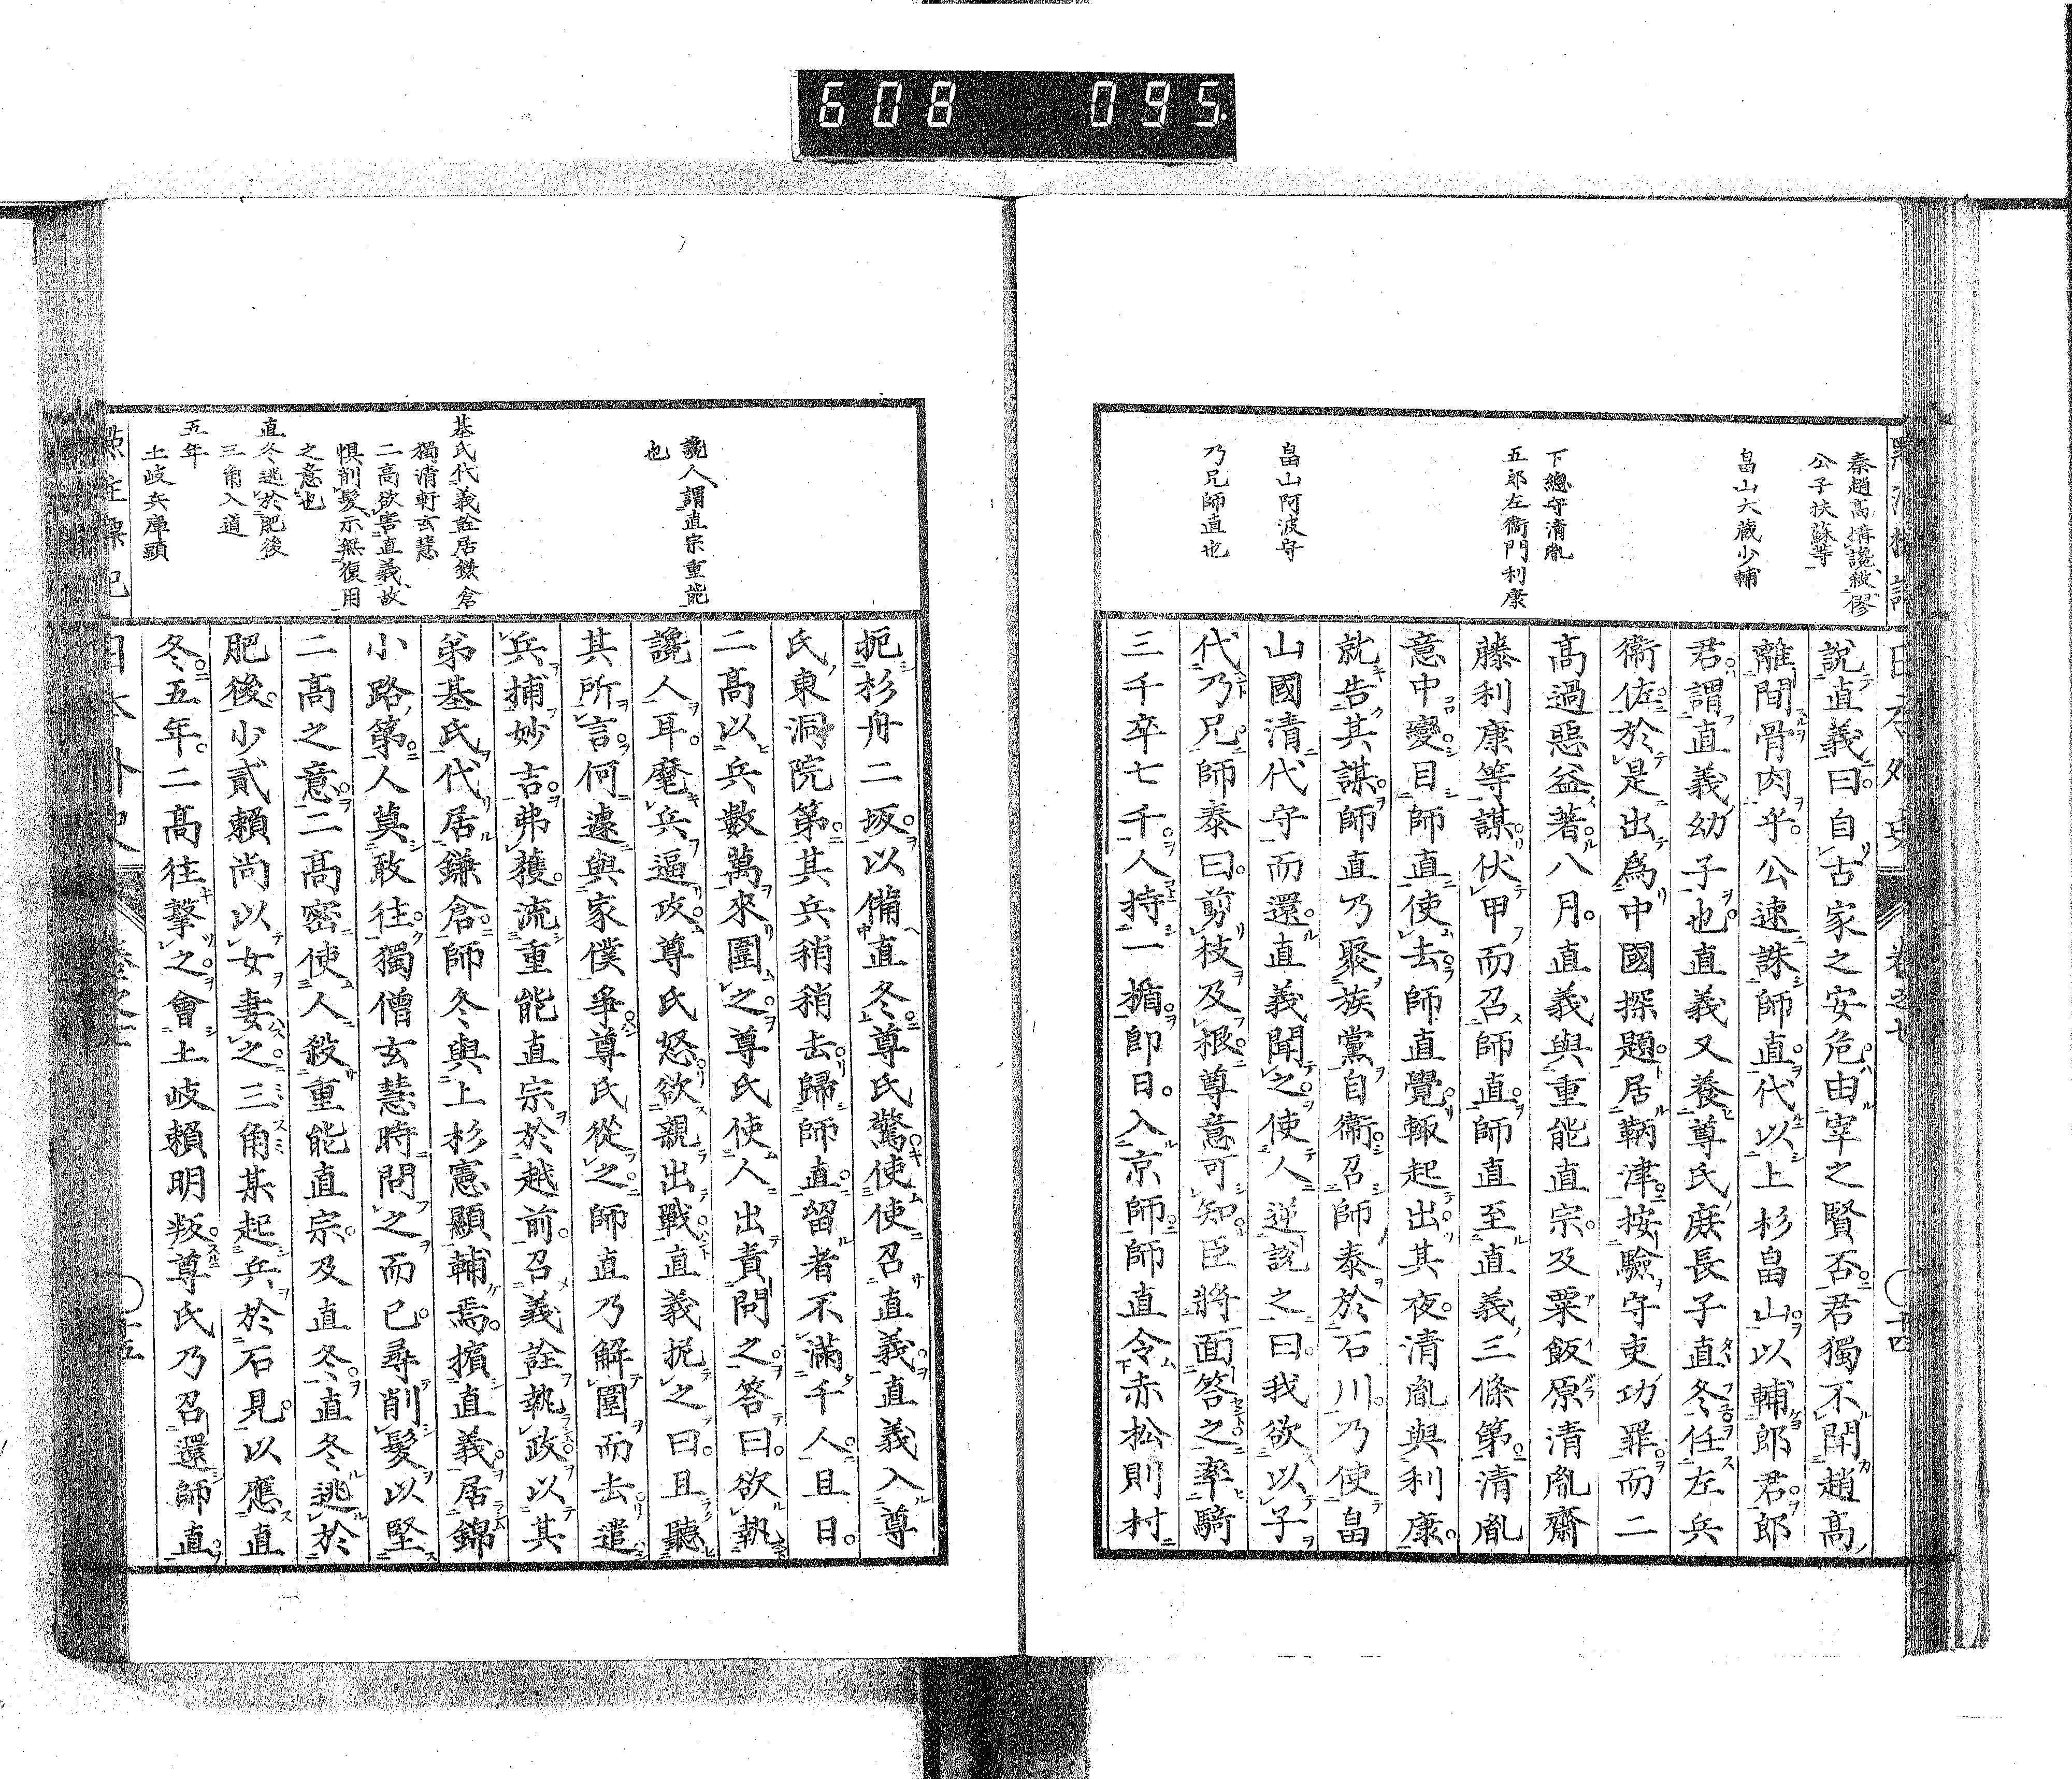 608 095
秦趙高搆讒殺僇
公子扶蘇等
畠山大蔵少輔
下總守清胤
五郎左衞門利康
畠山阿波守
乃兄師直也
日本外史 卷之七 〇十四
說直義曰自古家之安危由宰之賢否君獨不聞趙高
離間骨肉乎公速誅師直代以上杉畠山以輔郎君郎
君謂直義幼子也直義又養尊氏庶長子直冬任左兵
衞佐於是出爲中國探題居鞆津按驗守吏功罪而二
高過惡益著八月直義與重能直宗及粟飯原清胤齋
藤利康等謀伏甲而召師直師直至直義三條第清胤
意中變目師直使去師直覺輙起出其夜清胤與利康
就告其謀師直乃聚族黨自衞召師泰於石川乃使畠
山國清代守而還直義聞之使人逆說之曰我欲以子
代乃兄師泰曰剪枝及根尊意可知臣將面答之率騎
三千卒七千人持一楯卽日入京師師直令赤松則村
讒人謂直宗重能
也
基氏代義詮居鎌倉
獨清軒玄慧
二高欲害直義故
惧削髮示無復用
之意也
直冬逃於肥後
三角入道
五年
土岐兵庫頭
扼杉舟二坂以備直冬尊氏驚使使召直義直義入尊
氏東洞院第其兵稍稍去歸師直留者不滿千人且日
二高以兵數萬來圍之尊氏使人出責問之答曰欲執
讒人耳麾兵逼政尊氏怒欲親出戰直義扼之曰且聽
其所言何遽與家僕爭尊氏從之師直乃解圍而去遣
兵捕妙吉弗獲流重能直宗於越前召義詮執政以其
弟基氏代居鎌倉師冬與上杉憲顯輔焉擯直義居錦
小路第人莫敢往獨僧玄慧時問之而已尋削髮以堅
二高之意二高密使人殺重能直宗及直冬直冬逃於
肥後少貳賴尚以女妻之三角某起兵於石見以應直
冬五年二高往擊之會土岐賴明叛尊氏乃召還師直
㸃註標記 日本外史 卷之七 〇十五